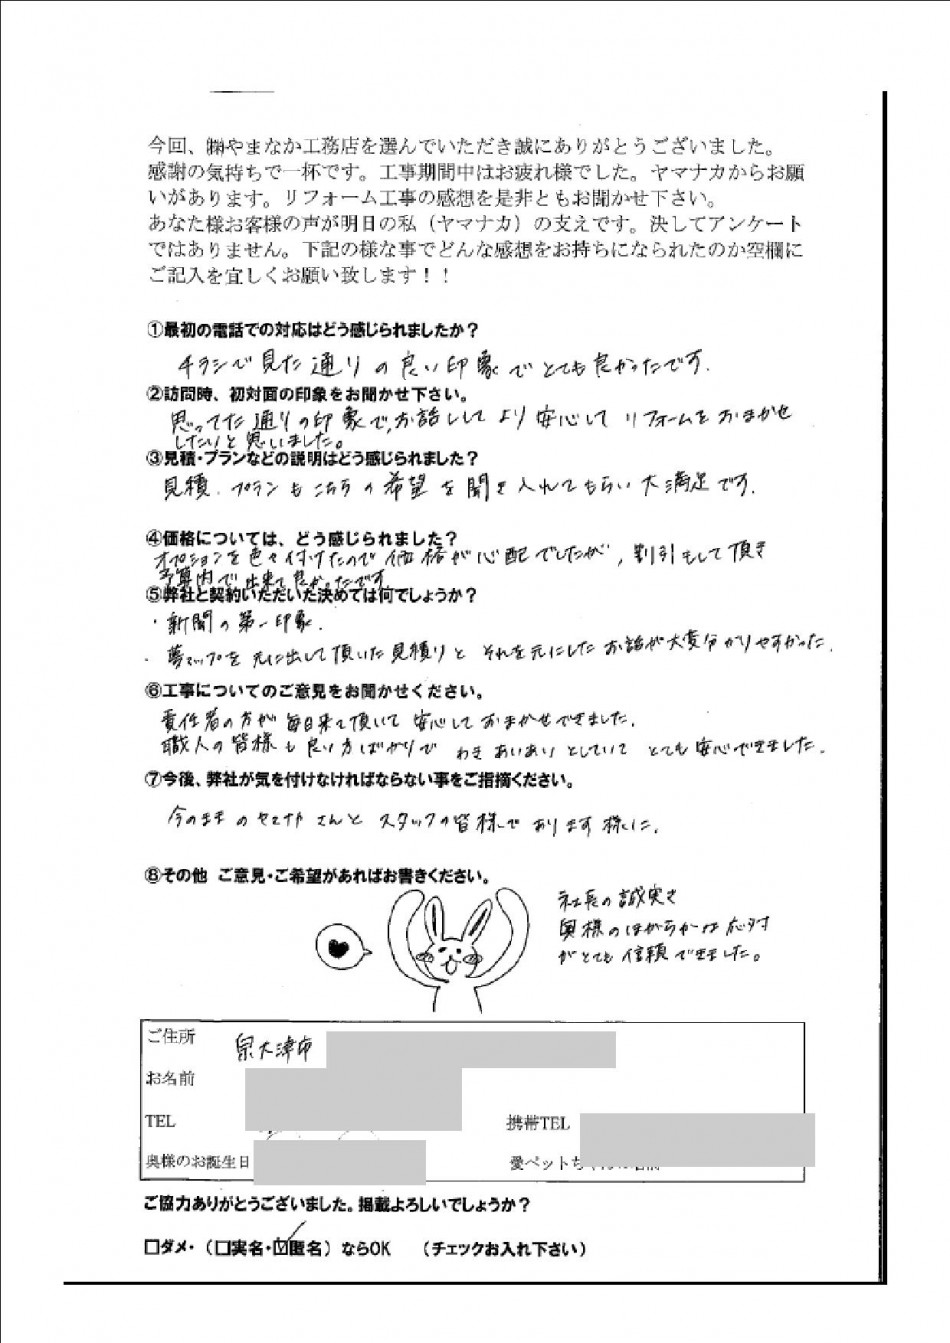 今回、㈱やまなか工務店を選んでいただき誠にありがとうございました。
感謝の気持ちで一杯です。工事期間中はお疲れ様でした。ヤマナカからお願
いがあります。リフォーム工事の感想を是非ともお聞かせ下さい。
あなた様お客様の声が明日の私（ヤマナカ）の支えです。決してアンケート
ではありません。下記の様な事でどんな感想をお持ちになられたのか空欄に
ご記入を宜しくお願い致します！！
①最初の電話での対応はどう感じられましたか？
チラシで見た通りの良い印象でとても良かったです.
②訪問時、初対面の印象をお聞かせ下さい。
思ってた通りの印象で、お話ししてより安心してリフォームをおまかせ
したいと思いました。
③見積・プランなどの説明はどう感じられました？
見積、プランもこちらの希望を聞き入れてもらい大満足です.
④価格については、どう感じられました？
オプションを色々付けたので価格が心配でしたが,割引もして頂き
予算内で出来て良かったです
⑤弊社と契約いただいた決めては何でしょうか？
・新聞の第一印象.
・夢マップを元に出して頂いた見積りとそれを元にしたお話が大変分かりやすかった.
⑥工事についてのご意見をお聞かせください。
責任者の方が毎日来て頂いて安心しておまかせできました.
職人の皆様も良い方ばかりでわきあいあいとしていてとても安心できました.
⑦今後、弊社が気を付けなければならない事をご指摘ください。
今のままのヤマナカさんとスタッフの皆様であります様に.
⑧その他 ご意見・ご希望があればお書きください。
社長の誠実さ
奥様のほがらかな応対
がとても信頼できました。
ご住所 泉大津市
お名前
TEL 携帯TEL
奥様のお誕生日 愛ペットちゃんの名前
ご協力ありがとうございました。掲載よろしいでしょうか？
□ダメ・（□実名・☑匿名）ならOK （チェックお入れ下さい）